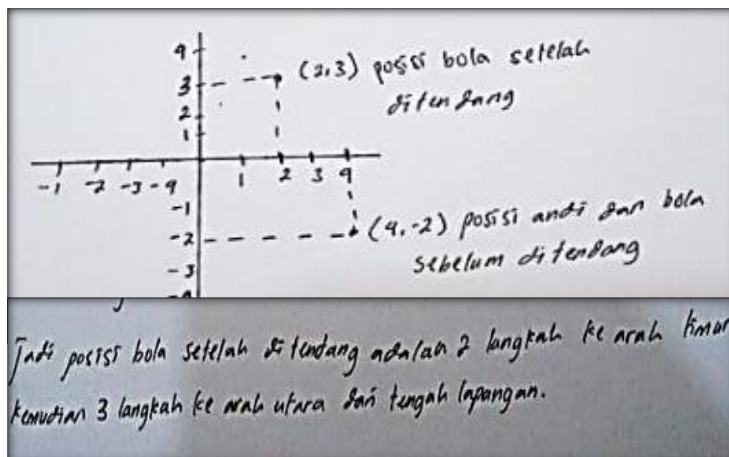 4
3
(2,3) posisi bola setelah
ditendang
2
1
-1 -2 -3 -4 1 2 3 4
-1
-2
(4,-2) posisi andi dan bola
sebelum ditendang
-3
-4
Jadi posisi bola setelah ditendang adalah 2 langkah ke arah timur
kemudian 3 langkah ke arah utara dari tengah lapangan.